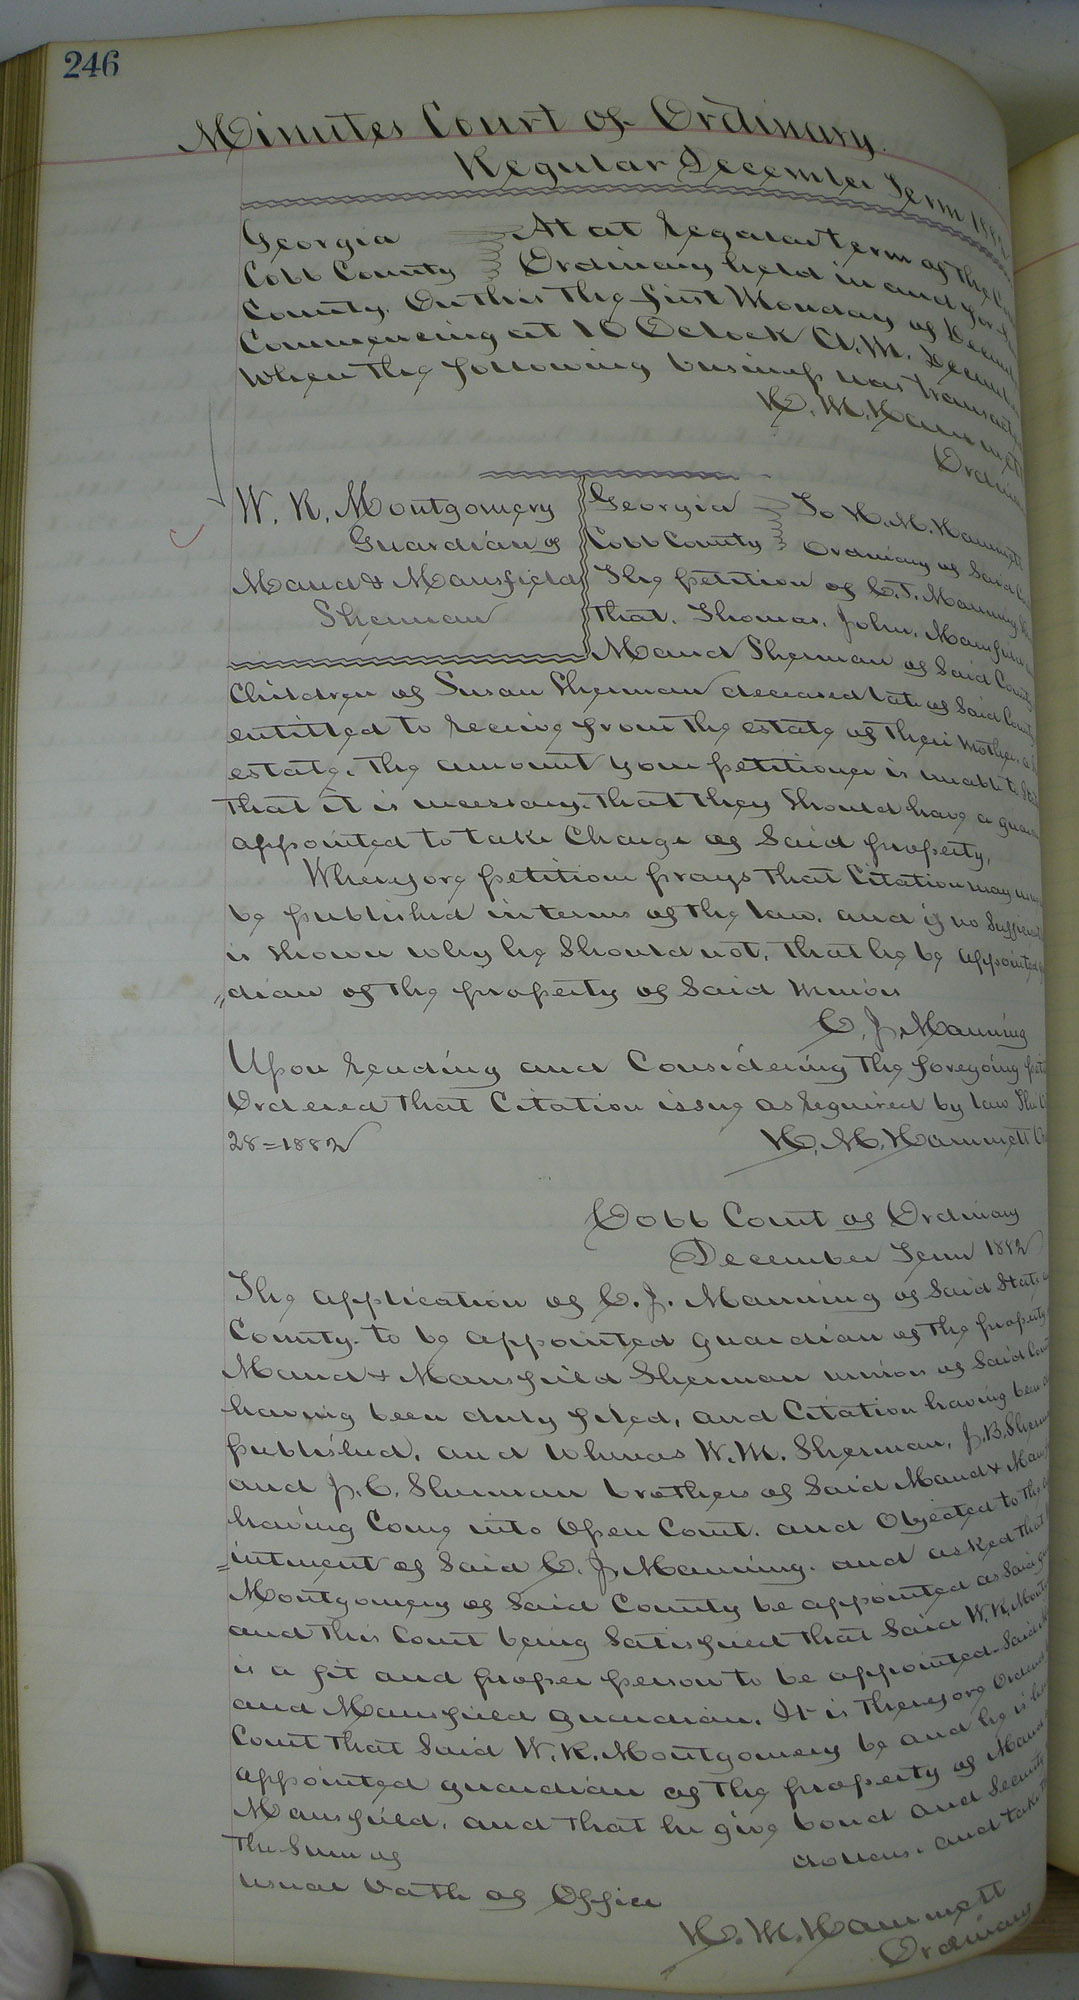 246
Minutes Court of Ordinary.
Regular December Term 1882
Georgia At at Regular term of the
Cobb County Ordinary held in and for
County. On this the first Monday of
Commencing at 10 Oclock A.M.
When the following business was
H. M. Hammett
W. R. Montgomery
Guardian of
Maud & Mansfield
Sherman
Georgia To H. M. Hammett
Cobb County Ordinary of Said
The petition of C. J. Manning
that. Thomas, John, Mansfield
Maud Sherman of Said County
Children of Susan Sherman deceased late of Said County
entitled to receive from the estate of their Mother,
estate, the amount your petitioner is unable to
that it is necessary. that they Should have a
appointed to take Charge of Said property,
Wherefore petition prays that Citation may
be published in terms of the law. and if no
is shown why he Should not, that he be appointed
"dian of the property of Said Minors
C. J. Manning
Upon reading and Considering the foregoing
Ordered that Citation issue as required by law
28=1882 H. M. Hammett
Cobb Court of Ordinary
December Term 1882
The application of C. J. Manning of Said State
County. to be appointed guardian of the property
Maud & Mansfield Sherman minors of Said
having been duly filed, and Citation having been
published, and Whereas W. M. Sherman, J. B.
and J. C. Sherman brothers of Said Maud &
having Come into Open Court. and Objected to the
=intment of Said C. J. Manning. and asked that
Montgomery of Said County be appointed as Said
and this Court being Satisfied that Said W. R.
is a fit and proper person to be appointed Said
and Mansfield guardian. It is therefore
Court that Said W. R. Montgomery be and he is
appointed guardian of the property of Maud
Mansfield. and that he give bond and Security
The Sum of dollars. and take
usual Oath of Office
H. M. Hammett
Ordinary